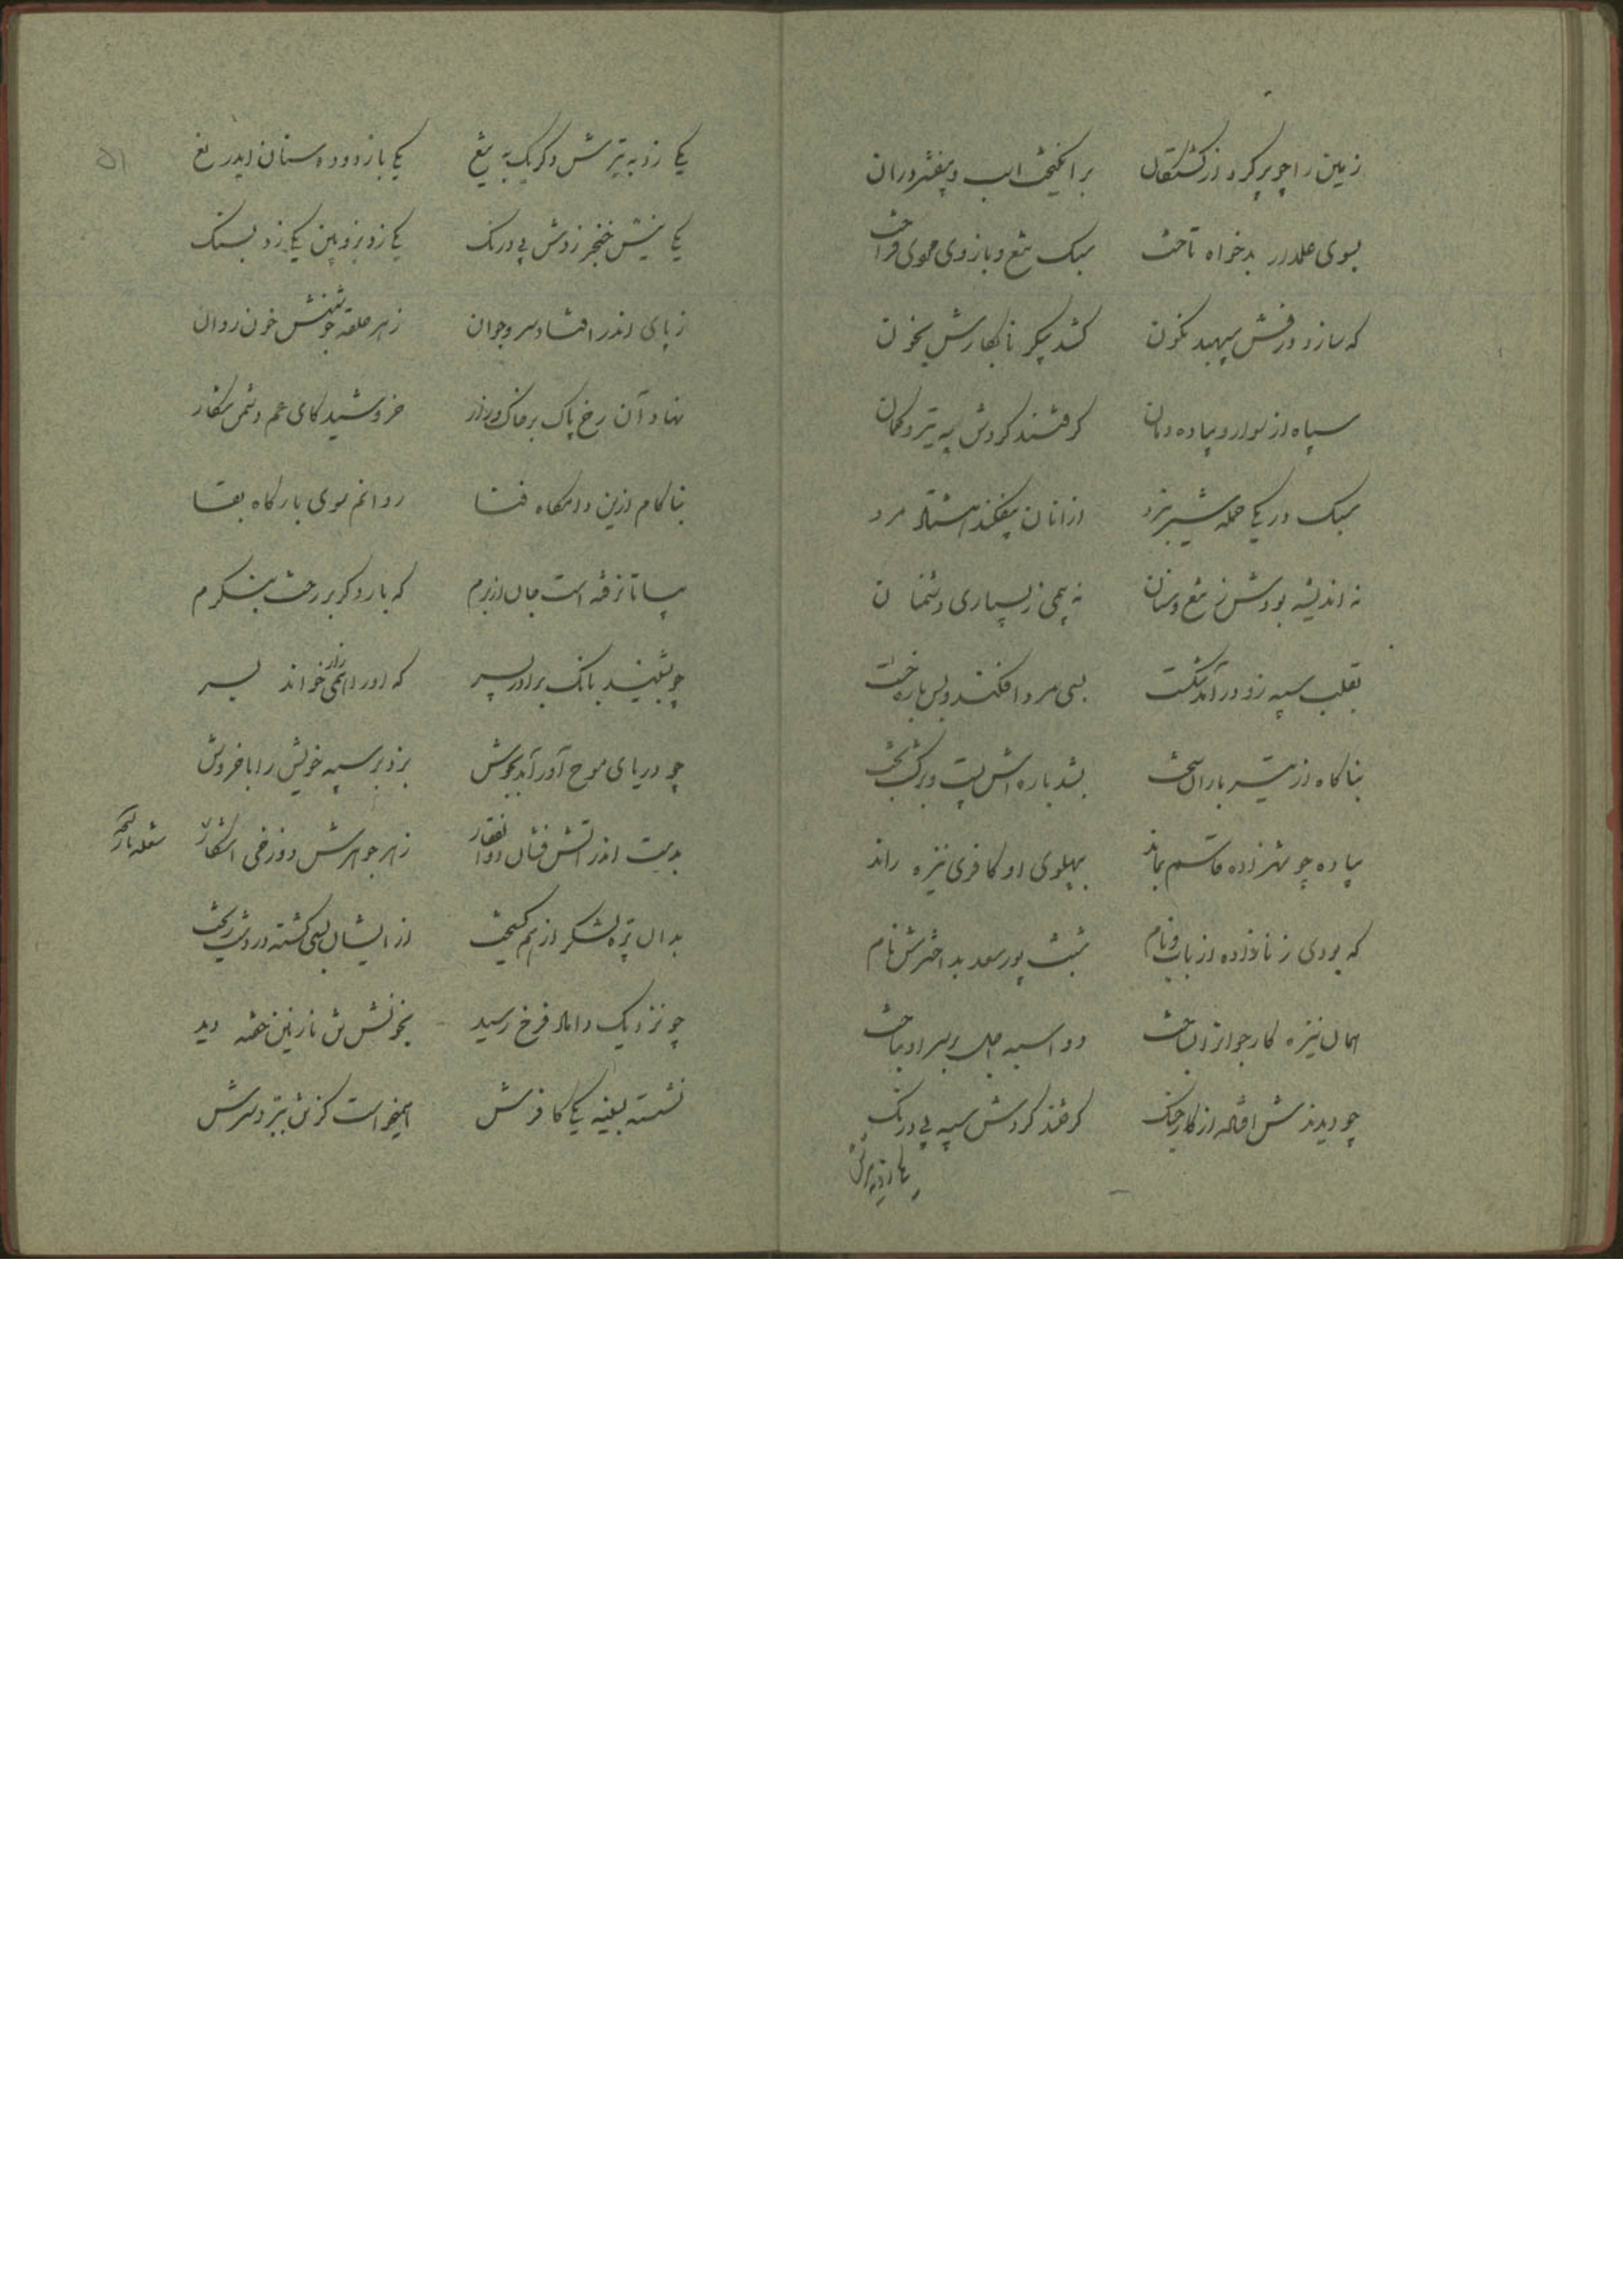 زمین را چو پر کرد از کشتگان برانگیخت اسب و بیفشرد ران
بسوی علمدار بدخواه تاخت سبک تیغ و بازوی عموی فراخت
که سازد درفش سپهبد نگون کشد پیکر نابکارش بخون
سپاه از سوار و پیاده دمان گرفتند گردش به تیر و کمان
سبک در یکی حمله شیر نبرد ازانان بیفکند هشتاد مرد
نه اندیشه بودش ز تیغ و سنان نه بیمی ز بسیاری دشمنان
بقلب سپه زود درآمد نگشت بسی مرد افکند و بس باره خست
بناگاه از تیر باران سخت بشد باره اش پست و برگشت بخت
پیاده چو شهزاده قاسم بماند بپهلوی او کافری نیزه راند
که بودی زنازاده از باب و مام شبث پور سعد بداخترش نام
همان نیزه کار جوانرا بساخت دو اسبه اجل بر سر او بتاخت
چو دیدندش افتاده از کار جنگ گرفتند گردش سپه بی درنگ
یکی زد به تیرش دگر یک به تیغ یکی بازدودہ سنان بیدریغ
یکی نیش خنجر زدش بی درنگ یکی زد بزوبین یکی زد بسنگ
ز پای اندر افتاد سرو جوان ز هر حلقه جوشنش خون روان
نهاد آن رخ پاک بر خاک زار خروشید کای عم دشمن شکار
بناکام ازین دامگاه فنا روانم سوی بارگاه بقا
بیا تا نرفته است جان از برم که بار دگر بر رخت بنگرم
چو بشنید بانگ برادر پسر که او را همی خواند زار بسر
چو دریای موج آور آمد بجوش بزد بر سپه خویش را با خروش
بدست اندر آتش فشان ذوالفقار ز هر جوهرش دوزخی آشکار
بدان تیره لشکر ز هم گسیخت از ایشان بسی کشته در دشت ریخت
چو نزدیک داماد فرخ رسید بخونش تن نازنین خفته دید
نشسته بسینه یکی کافرش همیخواست کز تن ببرد سرش
۵۱